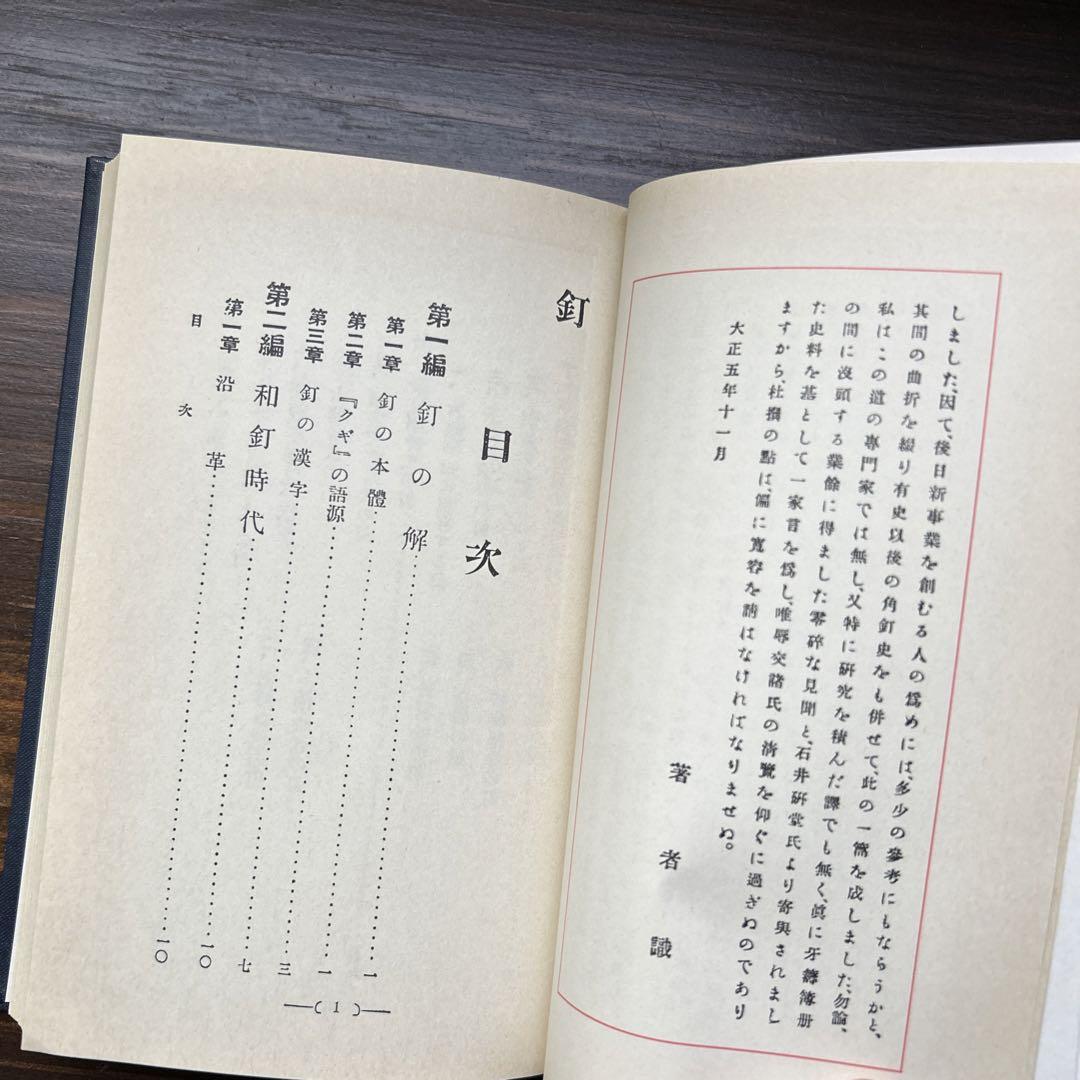 しました、因て、後日新事業を創むる人の爲めには、多少の參考にもならうかと、
其間の曲折を綴り有史以後の角釘史をも併せて、此の一篇を成しました、勿論、
私はこの道の專門家では無し、又特に研究を積んだ譯でも無く、眞に牙籌簿册
の間に沒頭する業餘に得ました零碎な見聞と、石井研堂氏より寄與されまし
た史料を基として一家言を爲し、唯辱交諸氏の淸覽を仰ぐに過ぎぬのであり
ますから、杜撰の點は、偏に寬容を請はなければなりませぬ。
大正五年十一月
著者識
釘
目次
第一編 釘の解……一
第一章 釘の本體……一
第二章 『クギ』の語源……一
第三章 釘の漢字……三
第二編 和釘時代……七
第一章 沿革……一〇
目次
一〇
―(1)―